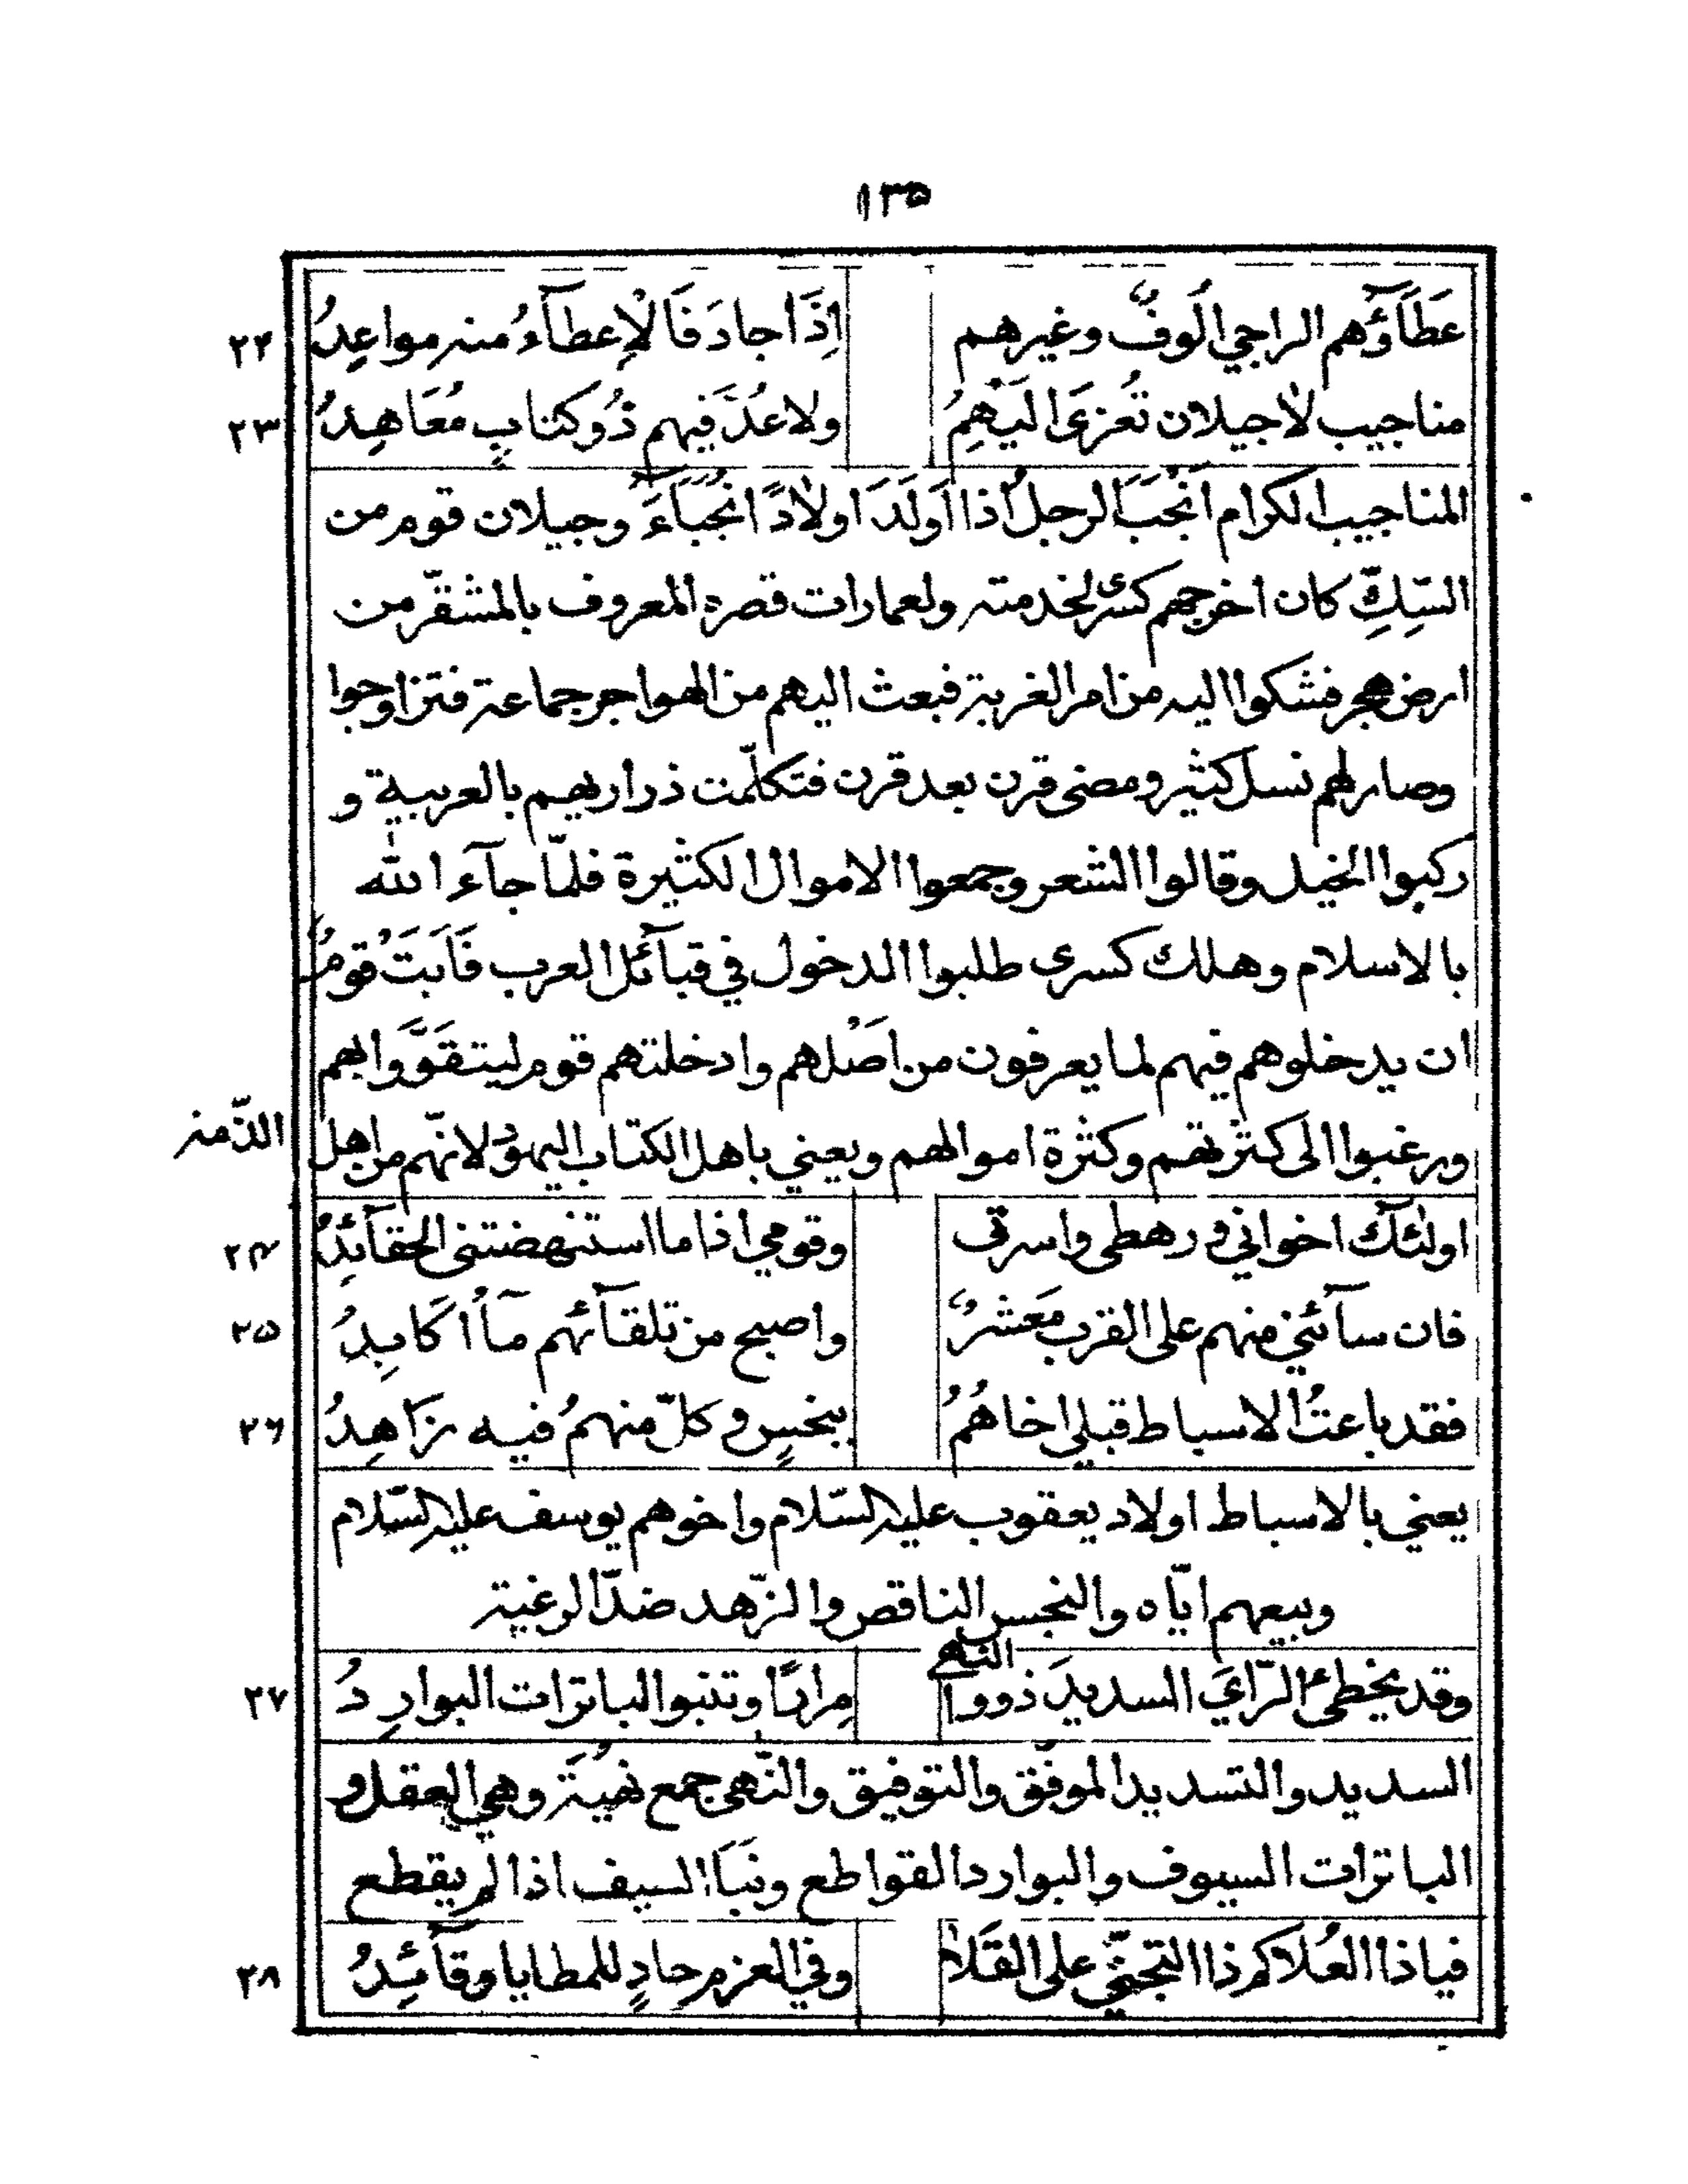 ١٣٥
عَطَآؤُهم الراجي الُوفٌ وغيرهم اِذَا جادَ فَالْإعطآءُ منه مواعِدُ ٢٢
مناجيب لاجيلان تُعزىَ اليَهِمُ ولاعُدَّ فيهم ذُوكتابٍ مُعَاهِدُ ٢٣
المناجيب الكرام اَنْجَبَ الرجلُ اذا اَولَدَ اولادًا نُجَبَآءَ وجيلان قوم من
السِّيكِّ كان اخرجهم كسرى لخدمته ولعمارات قصره المعروف بالمشقّر من
ارض هجر فشكوا اليه من امر الغربة فبعث اليهم من الهواجر جماعة فتزاوجوا
وصار لهم نسل كثير ومضى قرن بعد قرن فتكلّمت ذراريهم بالعربية و
ركبوا الخيل وقالوا الشعر وجمعوا الاموال الكثيرة فلمّا جآء الله
بالاسلام وهلك كسرى طلبوا الدخول في قبآئل العرب فَاَبَتَ قومٌ
ان يدخلوهم فيهم لما يعرفون من اَصْلهم وادخلتهم قوم ليتقَوَّوا بهم
ورغبوا الى كثرتهم وكثرة اموالهم ويعني باهل الكتاب اليهود لانّهم من اهل الذّمة
اولئك اخواني و رهطى واسرتى وقومي اذا ما استنهضتنى الحقآئِدُ ٢٤
فان سآئني منهم على القرب مَعشرٌ واصبح من تلقآئهم مآ اُكَابِدُ ٢٥
فقد باعتُ الاسباط قبلي اخاهُمُ ببخسٍ و كلّ منهمُ فيه زاهِدُ ٢٦
يعني بالاسباط اولاد يعقوب عليه السّلام واخوهم يوسف عليه السّلام
وبيعهم ايّاه والبخس الناقص والزّهد ضدّ الرغبة
وقد يخطئ الرّايَ السديدَ ذووا النهى مِرارًا وتنبوا الباترات البوارِدُ ٢٧
السديد والتسديد الموفّق والتوفيق والنّهى جمع نُهيَة وهي العقل و
الباترات السيوف والبوارد القواطع ونَبَا السيف اذا لم يقطع
فيا ذا العُلا كم ذا التجنّي على القَلا وفي العزم حادٍ للمطايا وقآئِدُ ٢٨